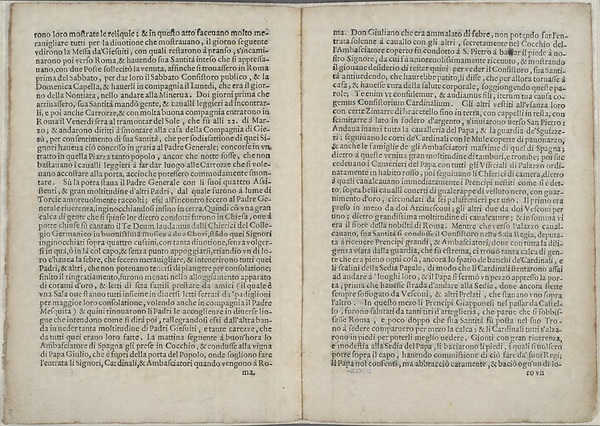 rono loro mostrate le reliquie; & in questo atto faceuano molto me-
rauigliare tutti per la diuotione che mostrauano, il giorno seguente
vdirono la Messa da'Giesuiti, con quali restarono à pranso, s'incami-
narono poi verso Roma, & hauendo sua Santità inteso che si appressa-
uano, con due Poste sollecitò la venuta, affinche si trouassero in Roma
prima del Sabbato, per dar loro il Sabbato Consistoro publico, & la
Domenica Capella, & hauerli in compagnia il Lunedi, che era il gior-
no della Nontiata, nello andare alla Minerua. Doi giorni prima che
arriuassero, sua Santità mandò gente, & caualli leggieri ad incontrar-
li, e poi anche Carrozze, & con molta buona compagnia entrarono in
Roma il Venerdi sera al tramontar del Sole, che fù alli 22. di Mar-
zo; & andarono diritti à smontare alla casa della Compagnia di Gie-
sù, per consentimento di sua Santità, che per sodisfattione di quei Si-
gnori haueua ciò concesso in gratia al Padre Generale; concorse in vn
tratto in quella Piazza tanto popolo, ancor che notte fosse, che non
bastauano i caualli leggieri à far dar luogo alle Carrozze che si vole-
nano accostare alla porta, accioche potessero commodamente smon-
tare. Sù la porta staua il Padre Generale con li suoi quattro Assi-
stenti, & gran moltitudine d'altri Padri, dal quale furono à lume di
Torcie amoreuolmente raccolti; essi all'incontro fecero al Padre Ge-
nerale riuerenza, inginocchiandosi insino in terra. Quindi cõ vna gran
calca di gente che si spinse lor dietro condotti furono in Chiesa, oue à
porte chiuse fù cantato il Te Deum laudamus dalli Chierici del Colle-
gio Germanico in buonissima musica à doe Chori, stãdo quei Signori
inginocchiati sopra quattro cussini, con tanta diuotione, senza volger-
si in quà, ò in là col capo, & senza punto appoggiarsi, etiandio vn di lo-
ro c'haueua la febre, che fecero merauigliare, & intenerirono tutti quei
Padri, & altri, che non poteuano tenersi di piangere per consolatione;
finito il ringratiamento, furono menati nello alloggiamento apparato
di corami d'oro, & letti di seta fattili prestare da amici (il quale è
vna Sala oue stanno tutti insieme in diuersi letti serrati da padiglioni
per maggior loro consolatione, volendo anche in compagnia il Padre
Mesquita) & quiui rinouarono li Padri le accoglienze in diuerse lin-
gue che intendono come si dirà poi, rallegrandosi essi dall'altra ban-
da in veder tanta moltitudine di Padri Giesuiti, e tante carezze, che
da tutti quei erano loro fatte. La mattina seguente à buon'hora lo
Ambasciatore di Spagna gli prese in Cocchio, & condusse alla vigna
di Papa Giulio, che è fuori della porta del Popolo, onde sogliono fare
l'entrata li Signori, Cardinali, & Ambasciatori quando vengono à Ro-
ma,
ma. Don Giuliano che era ammalato di febre, non potendo far l'en-
trata solenne à cauallo con gli altri, secretamente nel Cocchio del-
l'Ambasciatore coperto fù condotto à S. Pietro à baciar il piede à no-
stro Signore, da cui fù amoreuolissimamente riceuuto, & mostrando
il giouane desiderio di restar quiui per veder il Consistoro, sua Santi-
tà antiuedendo, che haurebbe patito, li disse, che per allora tornasse à
casa, & hauesse cura della salute corporale, soggiongendo queste pa-
role; Te enim vt consulemur, & audiamus filij, iterum tua causa co-
gemus Consistorium Cardinalium. Gli altri vestiti all'vsanza loro
con certe Zimarre di Ucarelello sino in terra, con cappelli in testa, con
scimitarre à lato in fodero d'argento, s'inuiarono verso San Pietro;
Andaua inanzi tutta la caualleria del Papa, & la guardia de'Suizze-
ri; seguiuano le corti de'Cardinali con le Mule coperte di paunazzo,
& anche le famiglie de gli Ambasciatori massime di quel di Spagna;
dietro à queste veniua gran moltitudine di tamburi, e trombe; poi suc-
cedeuano i Camerieri del Papa con tutti gli Vfficiali di Palazzo ordi-
natamente in habito rosso, poi seguiuano li Chierici di camera, dietro
à quali caualcauano immediatamente i Prencipi nostri come si è det-
to, sopra belli caualli couerti di gualdrappe di velluto nero, con guar-
nimento d'oro, circondati da sei palafrenieri per vno. Il primo era
preso in mezo da doi Arciuescoui; gli altri due da doi Vescoui per
vno; dietro grandissima moltitudine di caualcature; & in somma vi
era il fiore della nobiltà di Roma. Mentre che verso Palazzo caual-
cauano, fece sua Santità condursi Consistoro nella Sala Regia, deputa-
ta à riceuere Prencipi grandi, & Ambasciatori, doue con tutta la dili-
genza vsata dalla guardia, che fù estrema, ci trouò tanta calca di gen-
te che era pieno ogni cosa, ancora lo spatio de banchi de'Cardinali, e
li scalini della Sedia Papale, di modo che li Cardinali stentarono assai
ad andare à'luoghi loro, & il Papa si fermò vn pezzo appresso la por-
ta, prima che hauesse strada d'andare alla Sedia, doue ancora stette
sempre soffogato da Vescoui, & altri Prelati, che stauano vno sopra
l'altro. In questo mezo li Prencipi Giapponesi nel passar da Castel-
lo, furono salutati da tanti tiri d'artegliaria, che parue che si sobbis-
sasse Roma, e poco doppo che sua Santità fù posta nel suo Tro-
no à sedere comparsero per mezo la calca: & li Cardinali tutti s'alza-
rono in piedi per poterli meglio vedere. Gionti con gran riuerenza,
e modestia alla Sedia del Papa, li baciarono li piedi, i quali si volsero
porre sopra il capo, hauendo commissione di ciò fare da'suoi Regi;
Il Papa nol consentì, ma abbracciò caramente, & baciò ogn'un di lo-
ro vn